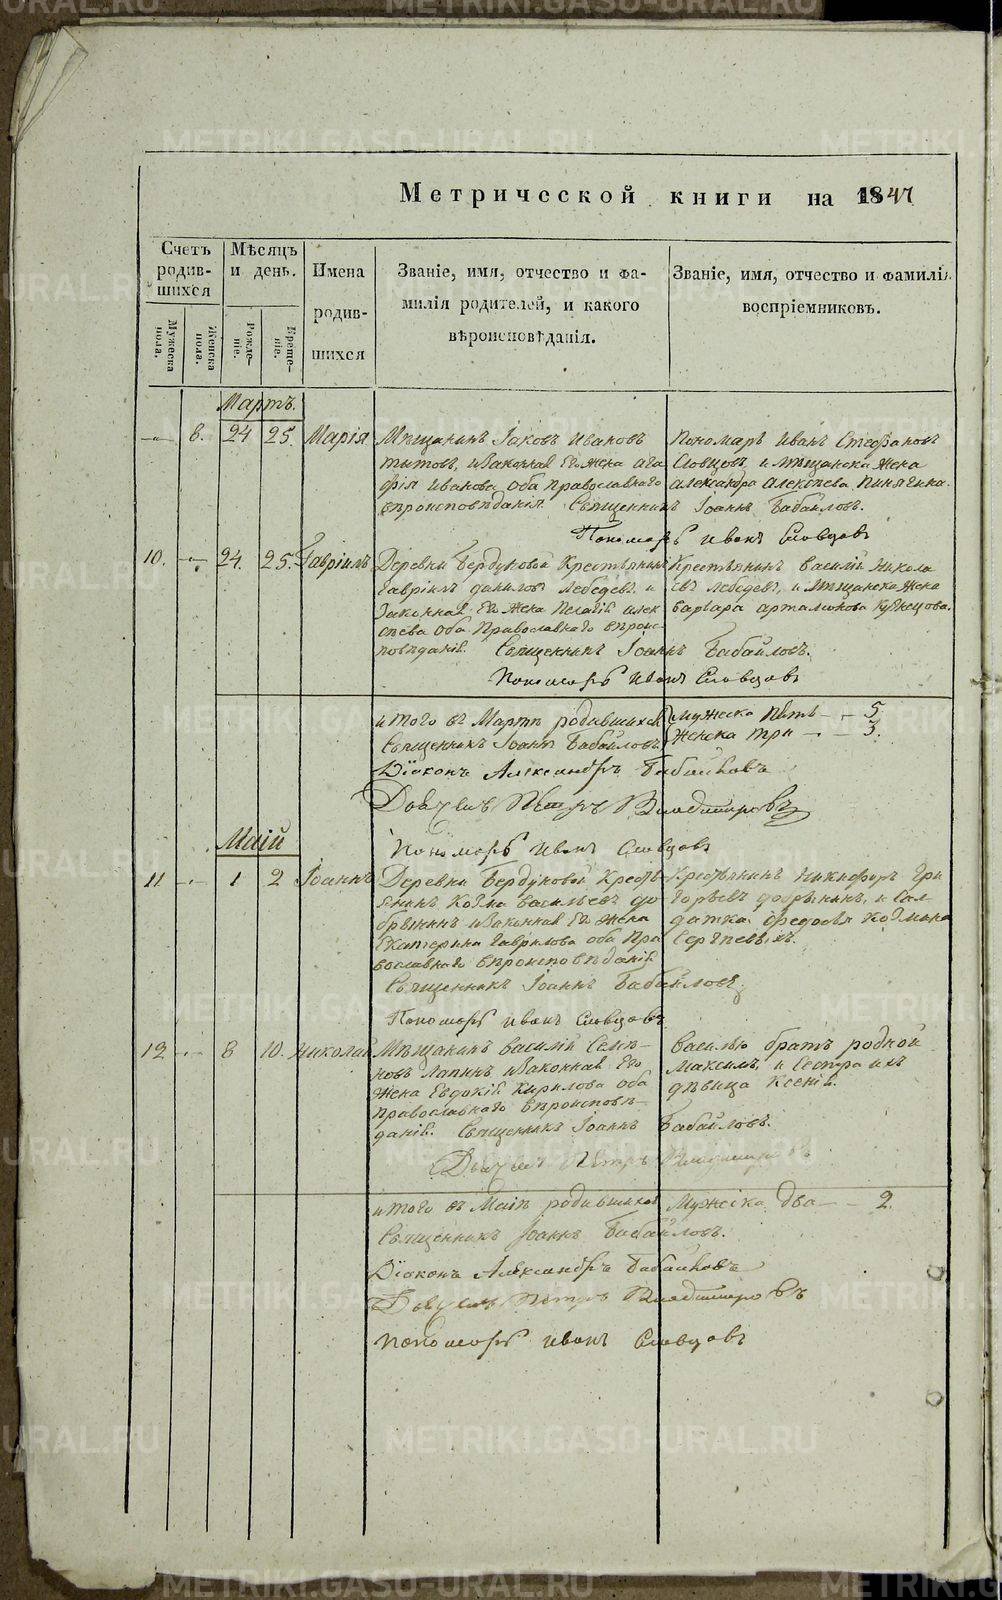 Метрической книги на 1847
Счетъ родившихся
Мѣсяцъ и день.
Имена родившихся
Званіе, имя, отчество и фамилія родителей, и какого вѣроисповѣданія.
Званіе, имя, отчество и фамилія воспріемниковъ.
Мужеска пола.
Женска пола.
Рожденіе.
Крещеніе.
Мартъ.
8. 24 25. Марія
Мѣщанинъ Іаковъ Ивановъ
Титовъ, и законная его жена Ага
фія Иванова, оба православнаго
вѣроисповѣданія. Священникъ Іоаннъ Бабайловъ.
Пономарь Иванъ Стефановъ
Словцовъ, и мѣщанска жена
Александра Алексѣева
Пономарь Иванъ Словцовъ
10. 24. 25. Гавріилъ
Деревни Бердуковой Крестьянинъ
Гавріилъ Даниловъ Лебедевъ и
законная его жена Пелагія Алек
сѣева оба Православнаго вѣроис-
повѣданія. Священникъ Іоаннъ Бабайловъ.
Крестьянинъ Василій Никола
евъ Лебедевъ, и мѣщанска жена
Варвара Артамонова Кузнецова.
Пономарь Иванъ Словцовъ
итого въ Мартѣ родившихся Мужеска пять — 5
Священникъ Іоаннъ Бабайловъ. Женска три — 3.
Діаконъ Александръ Бабайловъ
Дьячекъ Петръ Владимировъ
Пономарь Иванъ Словцовъ
Маій
11 1 2 Іоаннъ
Деревни Бердуковой Кресть
янинъ Козма Васильевъ До
брынинъ и законная его жена
Екатерина Гаврилова оба Пра
вославнаго вѣроисповѣданія
Крестьянинъ Никифоръ Гри
горьевъ Добрынинъ, и сол
датка Федосья Козмина
Сергѣевыхъ.
Священникъ Іоаннъ Бабайловъ
Пономарь Иванъ Словцовъ
12 8 10. Николай
Мѣщанинъ Василій Семе-
новъ Лапинъ и законная его
жена Евдокія Кирилова оба
православнаго вѣроисповѣ-
данія. Священникъ Іоаннъ Бабайловъ.
Василью братъ родной
Максимъ, и сестра ихъ
дѣвица Ксенія.
Дьячекъ Петръ Владимировъ
итого въ Маіѣ родившихся Мужеска два — 2.
Священникъ Іоаннъ Бабайловъ.
Діаконъ Александръ Бабайловъ
Дьячекъ Петръ Владимировъ
Пономарь Иванъ Словцовъ
METRIKI.GASO-URAL.RU